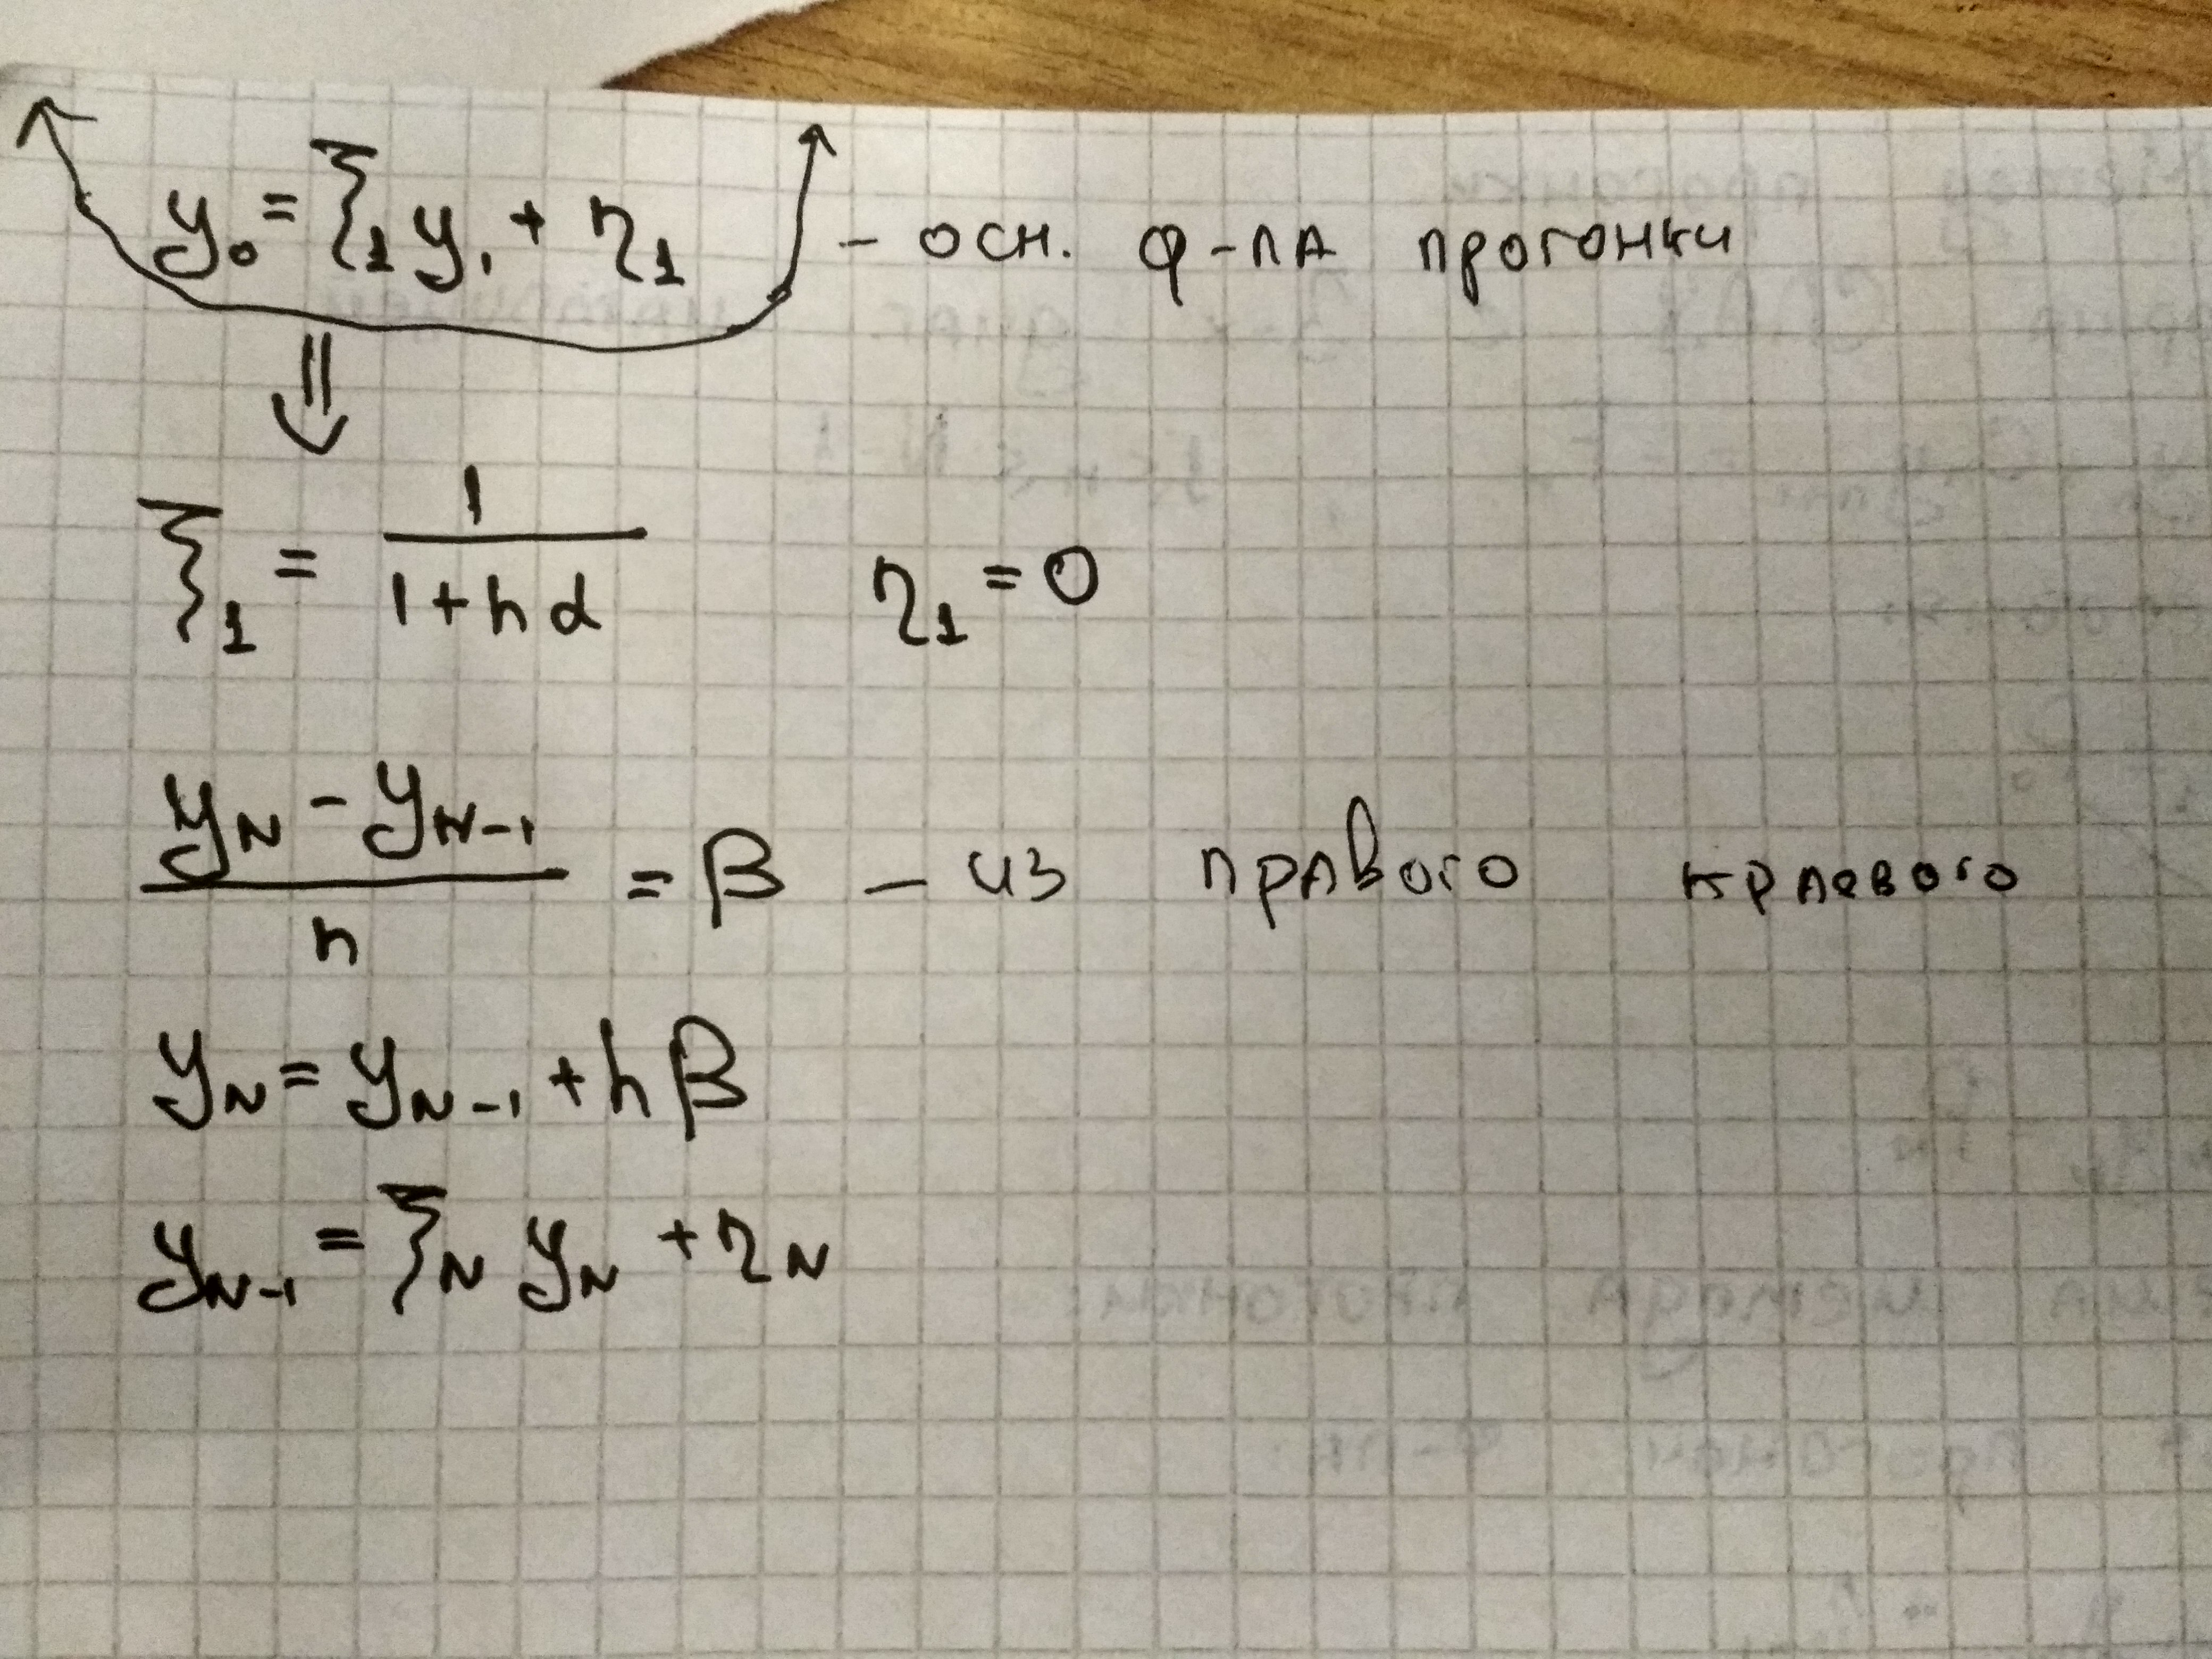 y₀ = ξ₁ y₁ + η₁ – осн. ф-ла прогонки
⇓
ξ₁ = 1/(1+hα) η₁ = 0
(y_N - y_{N-1})/h = β – из правого краевого
y_N = y_{N-1} + hβ
y_{N-1} = ξ_N y_N + η_N